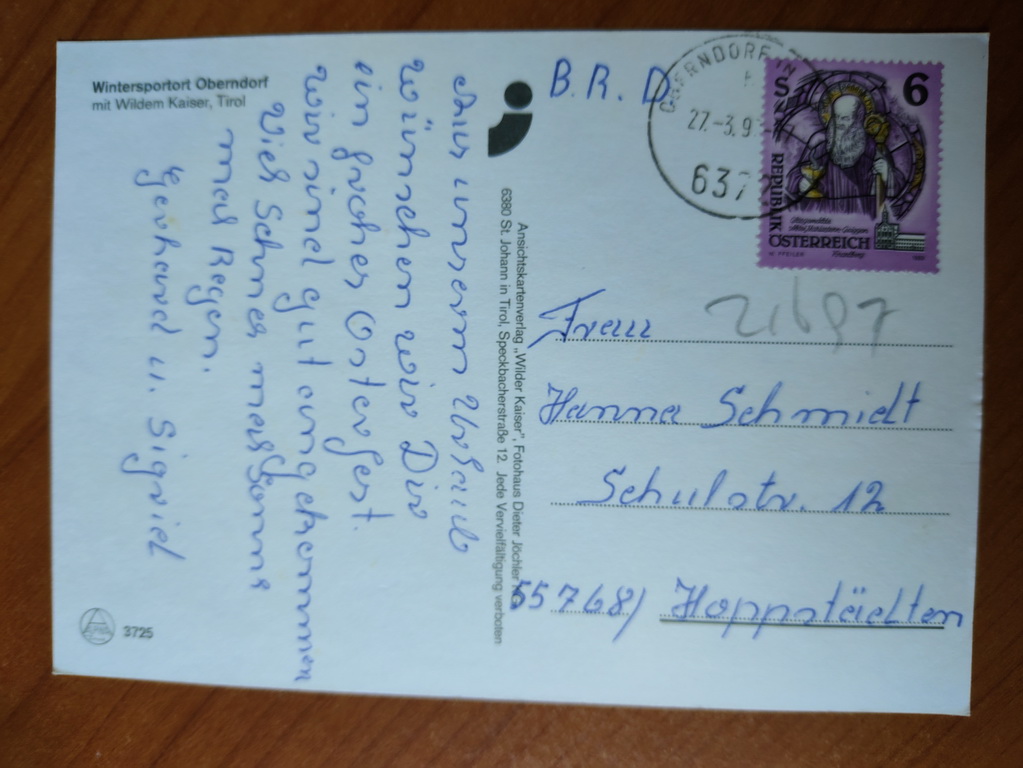 Wintersportort Oberndorf
mit Wildem Kaiser, Tirol
Aus unserem Urlaub
wünschen wir Dir
ein frohes Osterfest.
Wir sind gut angekommen
Viel Schnee mal Sonne
mal Regen.
Gerhard u. Sigrid
3725
Ansichtskartenverlag „Wilder Kaiser", Fotohaus Dieter Jöchler
6380 St. Johann in Tirol, Speckbacherstraße 12. Jede Vervielfältigung verboten
B. R. D
OBERNDORF IN
27.-3.9
637
S 6
REPUBLIK
ÖSTERREICH
21697
Frau
Hanna Schmidt
Schulstr. 12
55768/ Hoppstädten